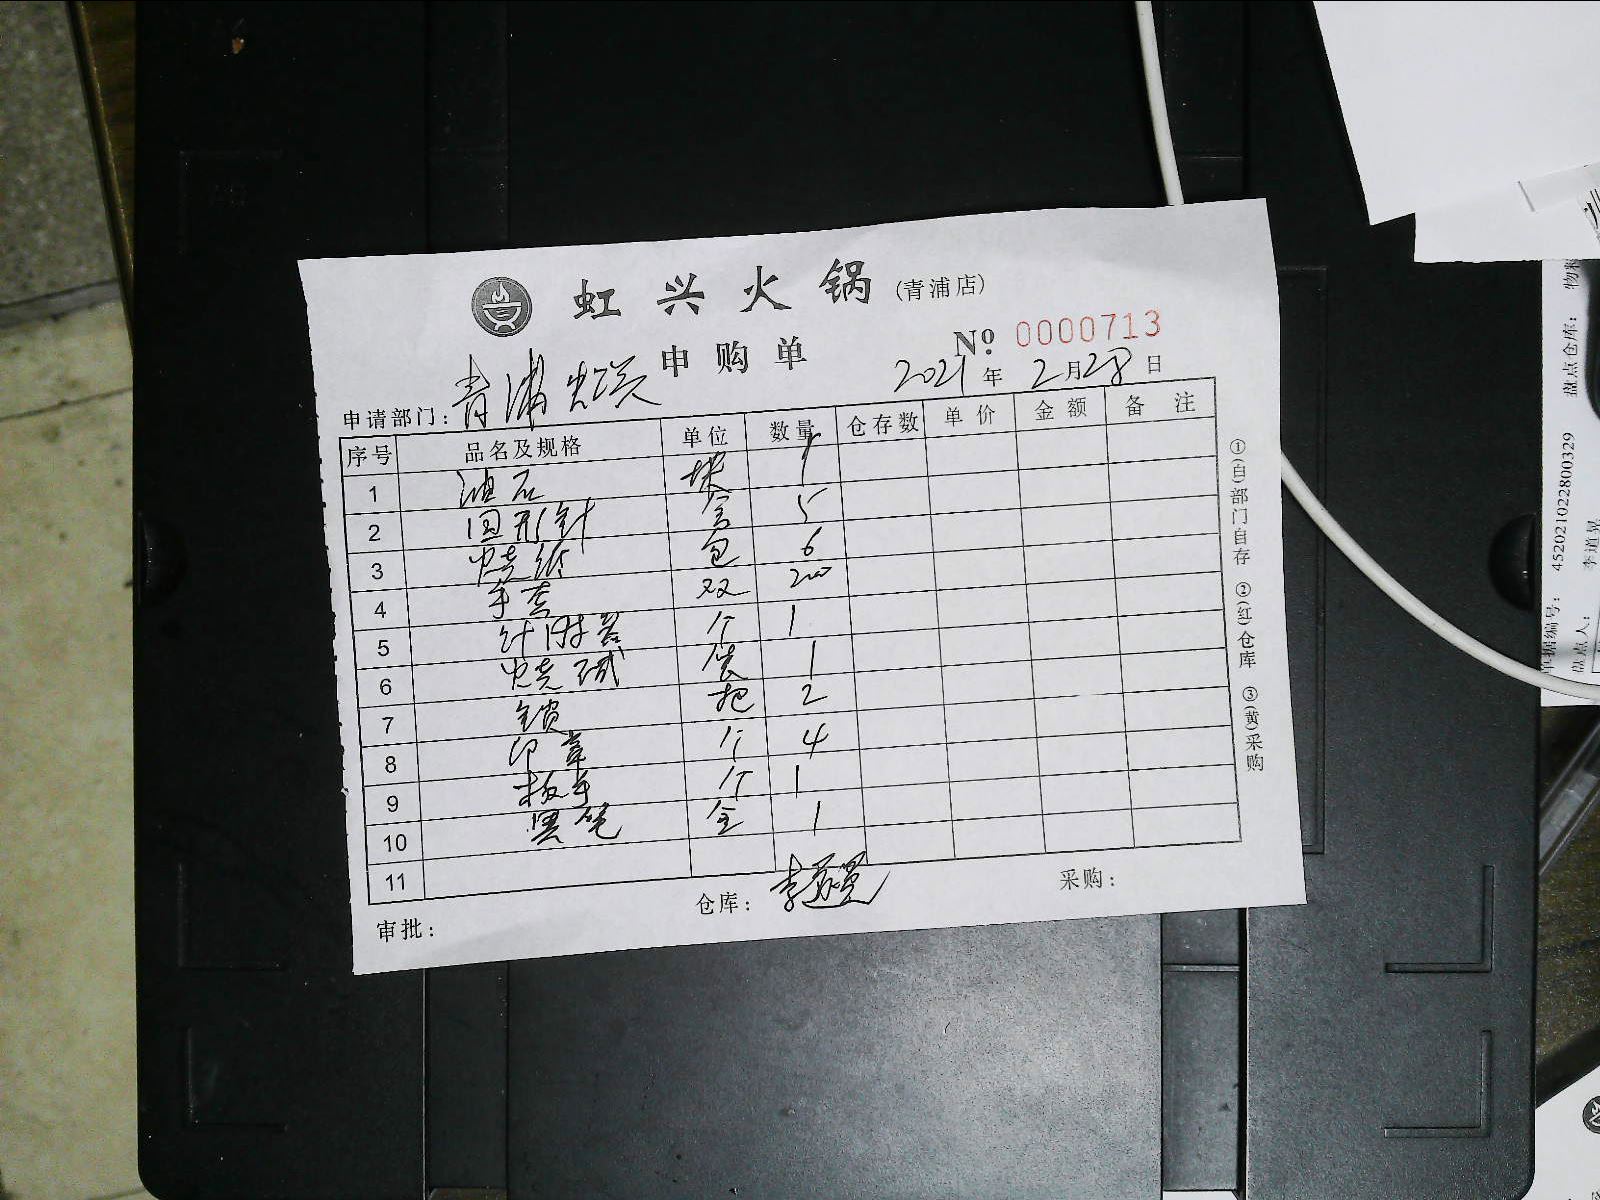 虹兴火锅 (青浦店)
申购单 Nº 0000713
申请部门: 青浦虹兴 2021 年 2 月 28 日
序号 品名及规格 单位 数量 仓存数 单价 金额 备注
1 油石 块 1
2 回形针 盒 5
3 烧纸 包 6
4 手套 双 200
5 计时器 个 1
6 烧碱 袋 1
7 锁 把 2
8 印章 个 4
9 板手 个 1
10 1
11
审批: 仓库: 李道晃 采购:
①(白)部门自存 ②(红)仓库 ③(黄)采购
盘点仓库: 物料
单据编号: 452021022800329
盘点人: 李道晃